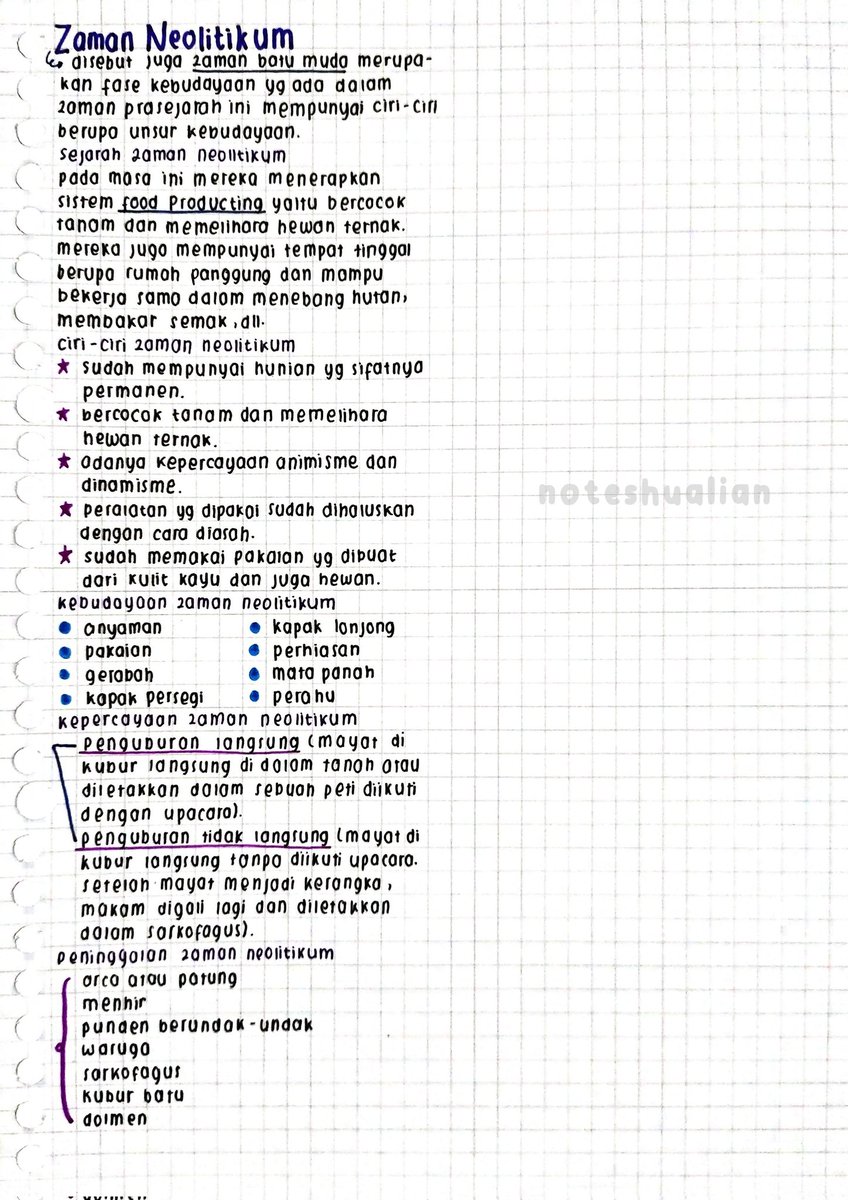 Zaman Neolitikum
disebut juga zaman batu muda merupa-
kan fase kebudayaan yg ada dalam
zaman prasejarah ini mempunyai ciri-ciri
berupa unsur kebudayaan.
sejarah zaman neolitikum
pada masa ini mereka menerapkan
sistem food producting yaitu bercocok
tanam dan memelihara hewan ternak.
mereka juga mempunyai tempat tinggal
berupa rumah panggung dan mampu
bekerja sama dalam menebang hutan,
membakar semak, dll.
ciri-ciri zaman neolitikum
★ sudah mempunyai hunian yg sifatnya
permanen.
★ bercocok tanam dan memelihara
hewan ternak.
★ adanya kepercayaan animisme dan
dinamisme.
★ peralatan yg dipakai sudah dihaluskan
dengan cara diasah.
★ sudah memakai pakaian yg dibuat
dari kulit kayu dan juga hewan.
kebudayaan zaman neolitikum
• anyaman • kapak lonjong
• pakaian • perhiasan
• gerabah • mata panah
• kapak persegi • perahu
kepercayaan zaman neolitikum
penguburan langsung (mayat di
kubur langsung di dalam tanah atau
diletakkan dalam sebuah peti diikuti
dengan upacara).
penguburan tidak langsung (mayat di
kubur langsung tanpa diikuti upacara.
setelah mayat menjadi kerangka,
makam digali lagi dan diletakkan
dalam sarkofagus).
peninggalan zaman neolitikum
arca atau patung
menhir
punden berundak-undak
waruga
sarkofagus
kubur batu
dolmen
noteshualian